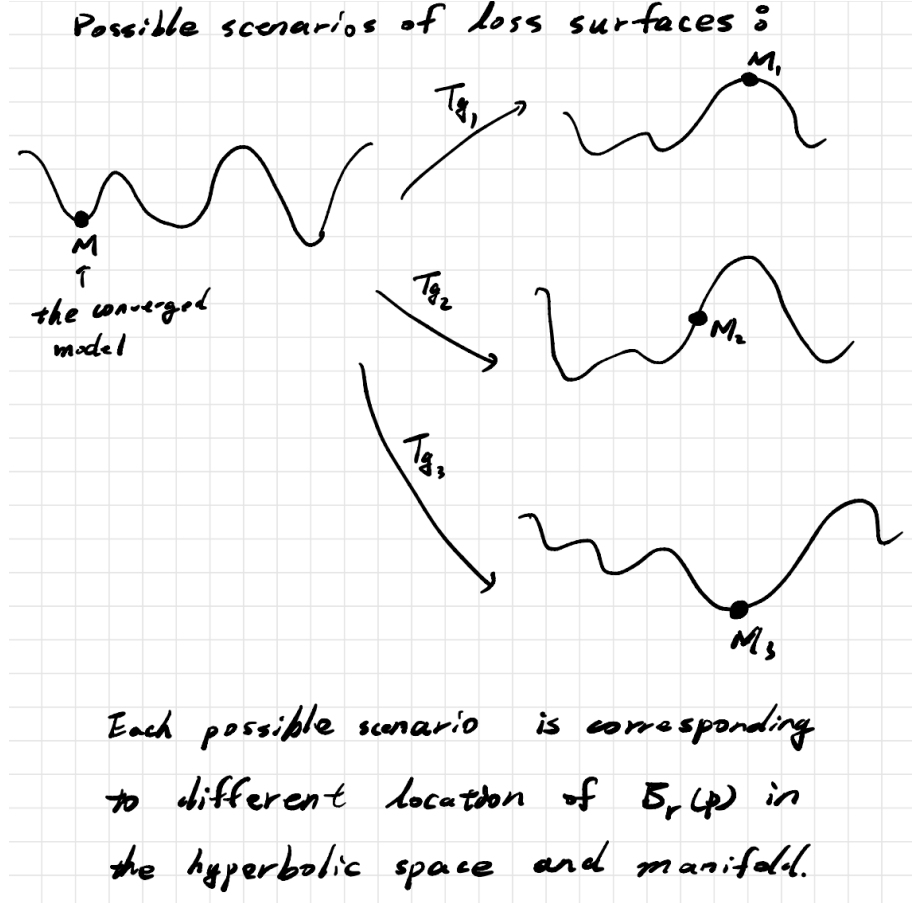 Possible scenarios of loss surfaces :
M₁
Tg₁
M
↑
the converged
model
Tg₂
M₂
Tg₃
M₃
Each possible scenario is corresponding
to different location of Bᵣ(p) in
the hyperbolic space and manifold.